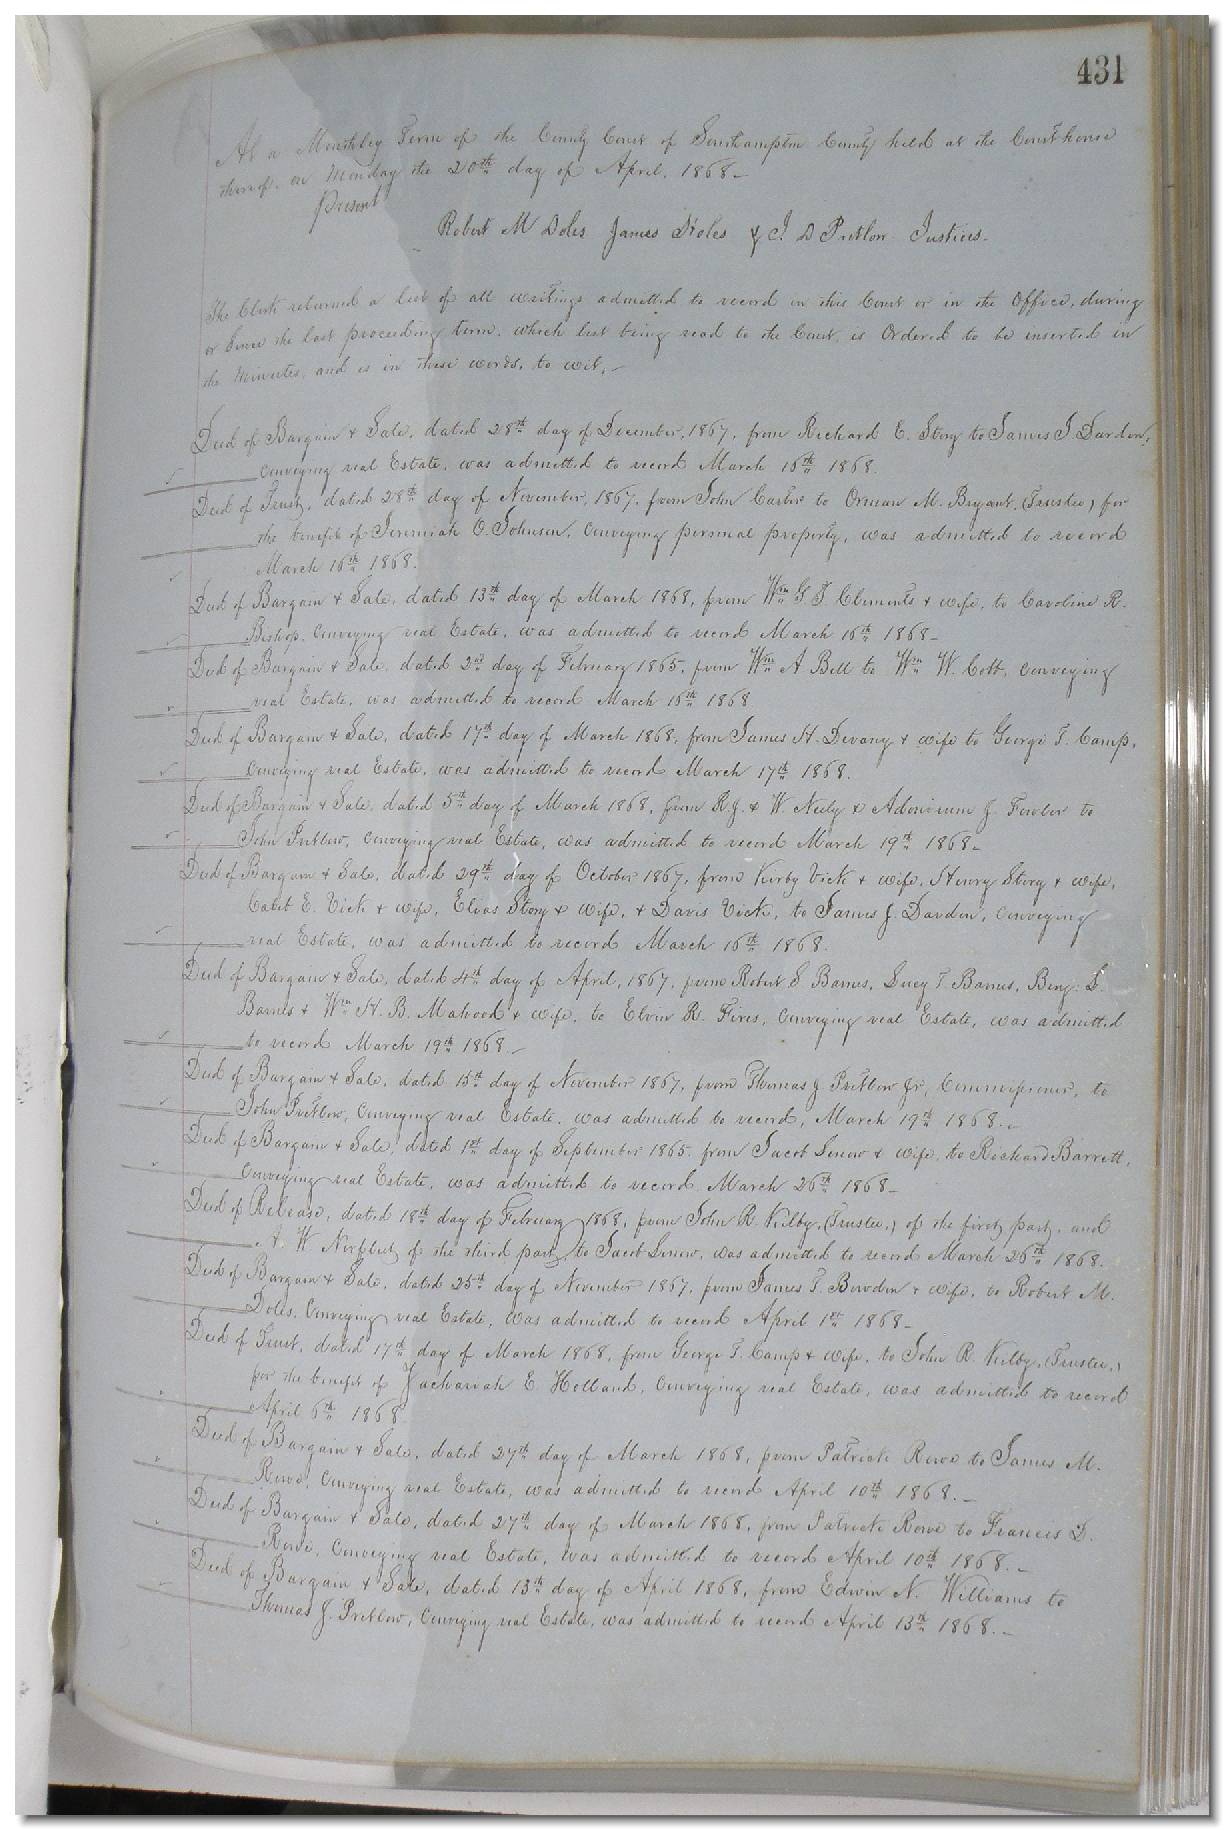 431
At a Monthly Term of the County Court of Southampton County held at the Courthouse
thereof, on Monday the 20th day of April, 1868—
Present
Robert M Doles James Doles & J. D Pretlow Justices.
The Clerk returned a list of all writings admitted to record in this Court or in the Office, during
or since the last preceeding term, which list being read to the Court, is Ordered to be inserted in
the Minutes, and is in these words, to wit,—
Deed of Bargain & Sale, dated 28th day of December, 1867, from Richard E. Story to James J Darden,
Conveying real Estate, was admitted to record March 16th 1868.
Deed of Trust, dated 28th day of November, 1867, from John Carter to Orman M. Bryant, (Trustee) for
the benefit of Jeremiah O. Johnson, Conveying personal property, was admitted to record
March 16th 1868.
Deed of Bargain & Sale, dated 13th day of March 1868, from Wm G T Clements & wife, to Caroline R.
Bishop, Conveying real Estate, was admitted to record March 16th 1868—
Deed of Bargain & Sale, dated 2nd day of February 1865, from Wm A Bell to Wm W. Cobb, Conveying
real Estate, was admitted to record March 16th 1868
Deed of Bargain & Sale, dated 17th day of March 1868, from James H. Devany & wife to George T. Camp,
Conveying real Estate, was admitted to record March 17th 1868.
Deed of Bargain & Sale, dated 5th day of March 1868, from R. J. & W. Neely & J. Fowler to
John Pretlow, Conveying real Estate, was admitted to record March 19th 1868—
Deed of Bargain & Sale, dated 29th day of October 1867, from Kirby Vick & wife, Henry Story & wife,
Calit E. Vick & wife, Elvas Story & wife, & Davis Vick, to James J. Darden, Conveying
real Estate, was admitted to record March 16th 1868.
Deed of Bargain & Sale, dated 4th day of April, 1867, from Robert S Barnes, Lucy T. Barnes, Benj. L.
Barnes & Wm H. B. Mahood & wife, to Elvin R. Fires, Conveying real Estate, was admitted
to record March 19th 1868.—
Deed of Bargain & Sale, dated 15th day of November 1867, from Thomas J Pretlow Jr, Commissioner, to
John Pretlow, Conveying real Estate, was admitted to record, March 19th 1868.—
Deed of Bargain & Sale, dated 1st day of September 1865, from Jacob Senow & wife, to Richard Barrett,
Conveying real Estate, was admitted to record March 26th 1868—
Deed of Release, dated 18th day of February 1868, from John R. Kilby, (Trustee,) of the first part, and
A. W Norfleet, of the third part, to Jacob Senow, was admitted to record March 26th 1868.
Deed of Bargain & Sale, dated 25th day of November 1867, from James T. Bowden & wife, to Robert M.
Doles, Conveying real Estate, was admitted to record April 1st 1868—
Deed of Trust, dated 17th day of March 1868, from George T. Camp & wife, to John R. Kilby, (Trustee,)
for the benefit of Zachariah E. Holland, Conveying real Estate, was admitted to record
April 6th 1868
Deed of Bargain & Sale, dated 27th day of March 1868, from Patrick Rowe to James M.
Rowe, Conveying real Estate, was admitted to record April 10th 1868.—
Deed of Bargain & Sale, dated 27th day of March 1868, from Patrick Rowe to Francis D.
Rowe, Conveying real Estate, was admitted to record April 10th 1868.—
Deed of Bargain & Sale, dated 13th day of April 1868, from Edwin N. Williams to
Thomas J. Pretlow, Conveying real Estate, was admitted to record April 13th 1868.—